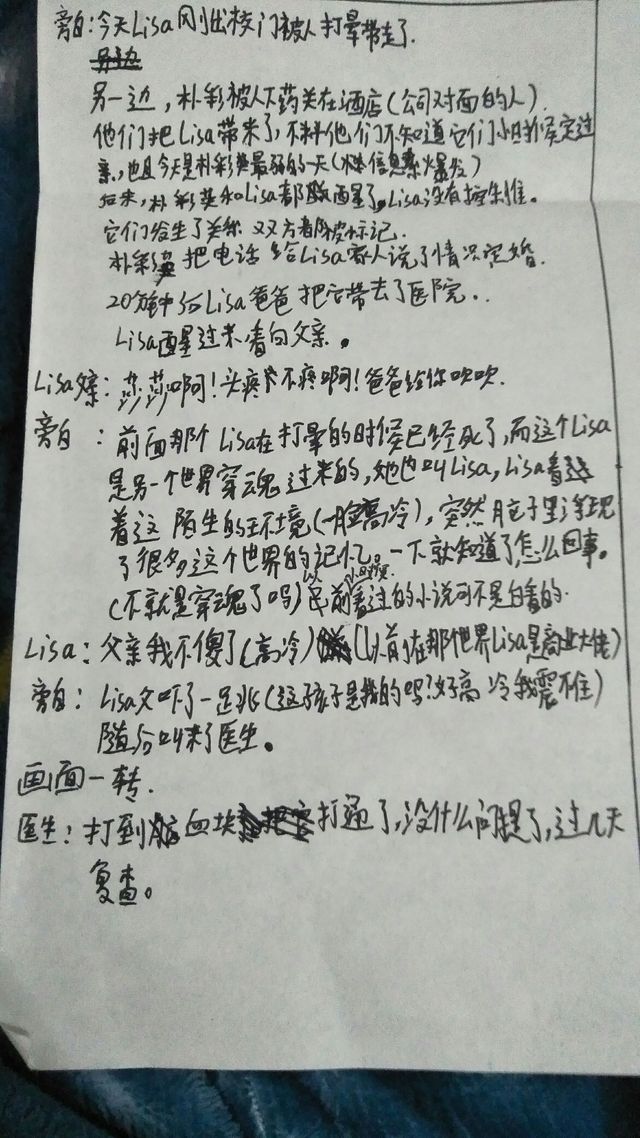 旁白：今天Lisa刚出校门被人打晕带走了.
另一边，朴彩被人下药关在酒店(公司对面的人)
他们把Lisa带来了，不料他们不知道它们小时候定过
亲，也且今天是朴彩英最弱的一天(信息素爆发)
后来，朴彩英和Lisa都醒了，Lisa没有控制住。
它们发生了关系 双方都被标记.
朴彩英把电话给Lisa家人说了情况定婚.
20分钟后Lisa爸爸把它带去了医院..
Lisa醒过来看向父亲。
Lisa父亲：莎莎啊！头疼不疼啊！爸爸给你吹吹.
旁白：前面那个Lisa在打晕的时候已经死了，而这个Lisa
是另一个世界穿魂过来的，她也叫Lisa，Lisa看
着这陌生的环境(一脸高冷)，突然脑子里浮现
了很多这个世界的记忆。一下就知道了怎么回事。
(不就是穿魂了吗)以前看过的小说可不是白看的.
Lisa：父亲我不傻了(高冷)(以前在那世界Lisa是商业大佬)
旁白：Lisa父吓了一足兆(这孩子是我的吗?好高冷我震不住)
随后叫来了医生。
画面一转.
医生：打到血块打通了，没什么问题了，过几天
复查。